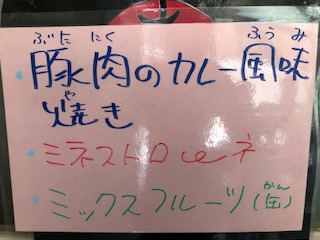 ぶた にく ふうみ
・豚肉のカレー風味
や
焼き
・ミネストローネ
かん
・ミックスフルーツ(缶)